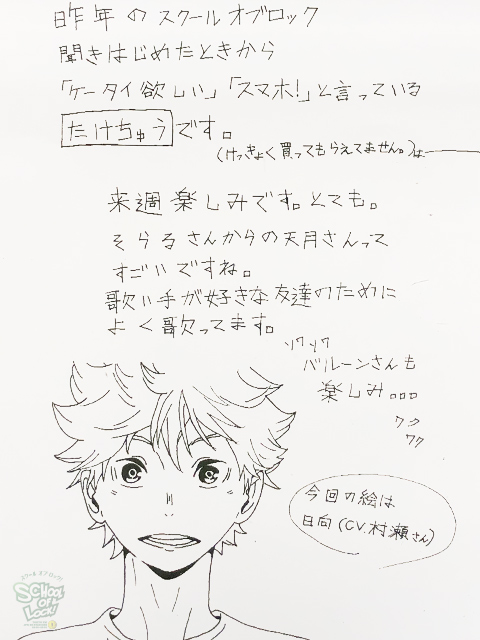 昨年のスクールオブロック
聞きはじめたときから
「ケータイ欲しい」「スマホ!」と言っている
たけちゅうです。
(けっきょく買ってもらえてません。)は—
来週楽しみです。とても。
そらるさんからの天月さんって
すごいですね。
歌い手が好きな友達のために
よく歌ってます。
ソワソワ
バルーンさんも
楽しみ。。。
ワク
ワク
今回の絵は
日向(CV.村瀬さん)
スクールオブロック!
SCHOOL
OF
LOCK!